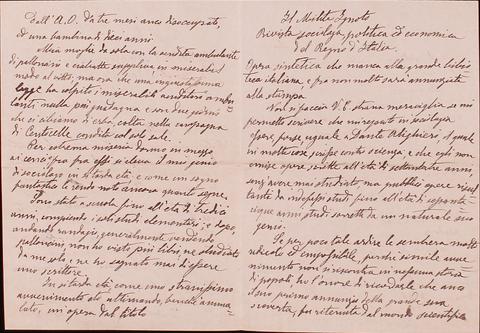 Dall'A.O. da tre mesi anco disoccupato,
ed una bambina di dieci anni.
Mia moglie da sola con la vendita ambulante
di palloncini e cialdette suppliva in miserabil
modo al vitto, ma ora che una ingiustissima
legge ha colpito i miserabili venditori ambu
lanti nulla più guadagna e son due giorni
che ci cibiamo di erba, colta nella campagna
di Centocelle condita col solo sale.
Per estrema miseria dormo su mezzo
ai cenci ma fra essi si eleva il mio genio
di sociologo in sì tarda età, e come un sogno
fantastico le rendo noto ancora quanto sopra.
Sono stato a scuola fino all'età di tredici
anni, compiendo i soli studi elementari; e dopo,
andando randagio, generalmente vendendo
palloncini, non ho visto più libri, né studiato
da me solo; né ho sognato mai d'essere
uno scrittore.
In sì tarda età, come uno stranissimo
avvenimento sto ultimando, benché amma
lato, un'opera dal titolo
Il Milite Ignoto
Rivista sociologa, politica ed economica
del Regno d'Italia.
Opera sintetica che manca alla grande biblio
teca italiana, e fra non molto sarà annunziata
alla stampa.
Non si faccia V.E. strana meraviglia se mi
permetto scrivere che mi reputo in sociologia
essere, forse, uguale a Dante Alighieri, il quale
in molte cose scrisse contro scienza; e che egli non
emise opere scritte all'età di settantadue anni,
senz'avere mai studiato, ma pubblicò opere risul
tante da indefessi studi fino all'età di
cinque anni studi sorretti da un naturale suo
genio.
Se per poco tale ardire le sembrerà mal
educato ed impossibile, perché simile avve
nimento non si riscontra in nessuna storia
di popoli, ho l'onore di ricordarle che anco
il suo primo annunzio della grande sua
scoverta, fu ritenuta dal mondo scientifico